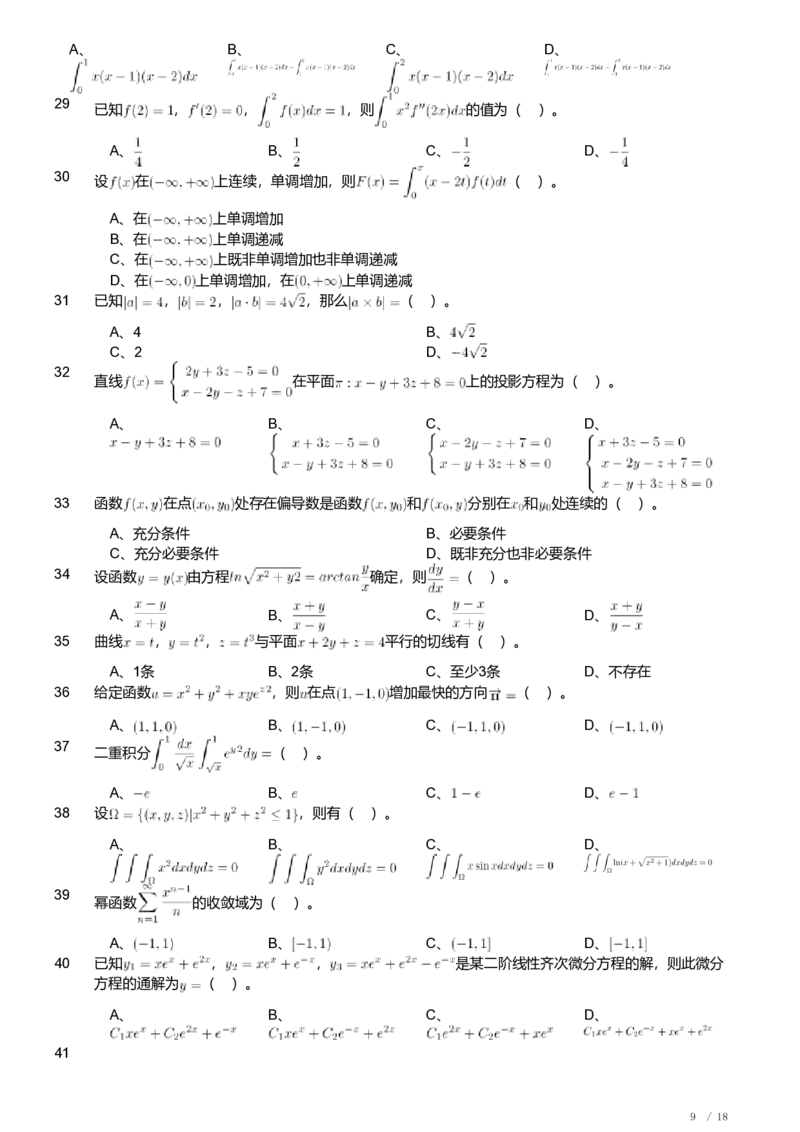 A、 B、 C、 D、
∫₀¹ x(x−1)(x−2)dx ∫₀² x(x−1)(x−2)dx
29 已知f(2) = 1, f′(2) = 0, ∫₀² f(x)dx = 1, 则∫₀¹ x²f″(2x)dx的值为（ ）。
A、1/4 B、1/2 C、−1/2 D、−1/4
30 设f(x)在(−∞,+∞)上连续，单调增加，则F(x) = ∫₀ˣ (x − 2t)f(t)dt（ ）。
A、在(−∞,+∞)上单调增加
B、在(−∞,+∞)上单调递减
C、在(−∞,+∞)上既非单调增加也非单调递减
D、在(−∞,0)上单调增加，在(0,+∞)上单调递减
31 已知|a| = 4, |b| = 2, |a · b| = 4√2，那么|a × b| =（ ）。
A、4 B、4√2
C、2 D、−4√2
32 直线f(x) = { 2y + 3z − 5 = 0 x − 2y − z + 7 = 0 在平面π : x − y + 3z + 8 = 0上的投影方程为（ ）。
A、 B、 C、 D、
x − y + 3z + 8 = 0 { x + 3z − 5 = 0 x − y + 3z + 8 = 0 { x − 2y − z + 7 = 0 x − y + 3z + 8 = 0 { x + 3z − 5 = 0 x − 2y − z + 7 = 0 x − y + 3z + 8 = 0
33 函数f(x,y)在点(x₀,y₀)处存在偏导数是函数f(x,y₀)和f(x₀,y)分别在x₀和y₀处连续的（ ）。
A、充分条件 B、必要条件
C、充分必要条件 D、既非充分也非必要条件
34 设函数y = y(x)由方程ln√(x² + y2) = arctan y/x 确定，则 dy/dx =（ ）。
A、(x − y)/(x + y) B、(x + y)/(x − y) C、(y − x)/(x + y) D、(x + y)/(y − x)
35 曲线x = t, y = t², z = t³与平面x + 2y + z = 4平行的切线有（ ）。
A、1条 B、2条 C、至少3条 D、不存在
36 给定函数u = x² + y² + xyeᶻ²，则u在点(1,−1,0)增加最快的方向n⃗ =（ ）。
A、(1,1,0) B、(1,−1,0) C、(−1,1,0) D、(−1,1,0)
37 二重积分∫₀¹ dx/√x ∫_√x^1 e^y2 dy =（ ）。
A、−e B、e C、1 − e D、e − 1
38 设Ω = {(x,y,z)|x² + y² + z² ≤ 1}，则有（ ）。
A、 B、 C、 D、
∫∫∫_Ω x²dxdydz = 0 ∫∫∫_Ω y²dxdydz = 0 ∫∫∫_Ω x sin xdxdydz = 0 ∫∫∫_Ω ln(x + √(x² + 1))dxdydz = 0
39 幂函数 ∑_{n=1}^∞ xⁿ⁻¹/n 的收敛域为（ ）。
A、(−1,1) B、[−1,1) C、(−1,1] D、[−1,1]
40 已知y₁ = xeˣ + e²ˣ, y₂ = xeˣ + e⁻ˣ, y₃ = xeˣ + e²ˣ − e⁻ˣ是某二阶线性齐次微分方程的解，则此微分
方程的通解为y =（ ）。
A、 B、 C、 D、
C₁xeˣ + C₂e²ˣ + e⁻ˣ C₁xeˣ + C₂e⁻ˣ + e²ˣ C₁e²ˣ + C₂e⁻ˣ + xeˣ C₁xeˣ + C₂e⁻ˣ + xeˣ + e²ˣ
41
9 / 18